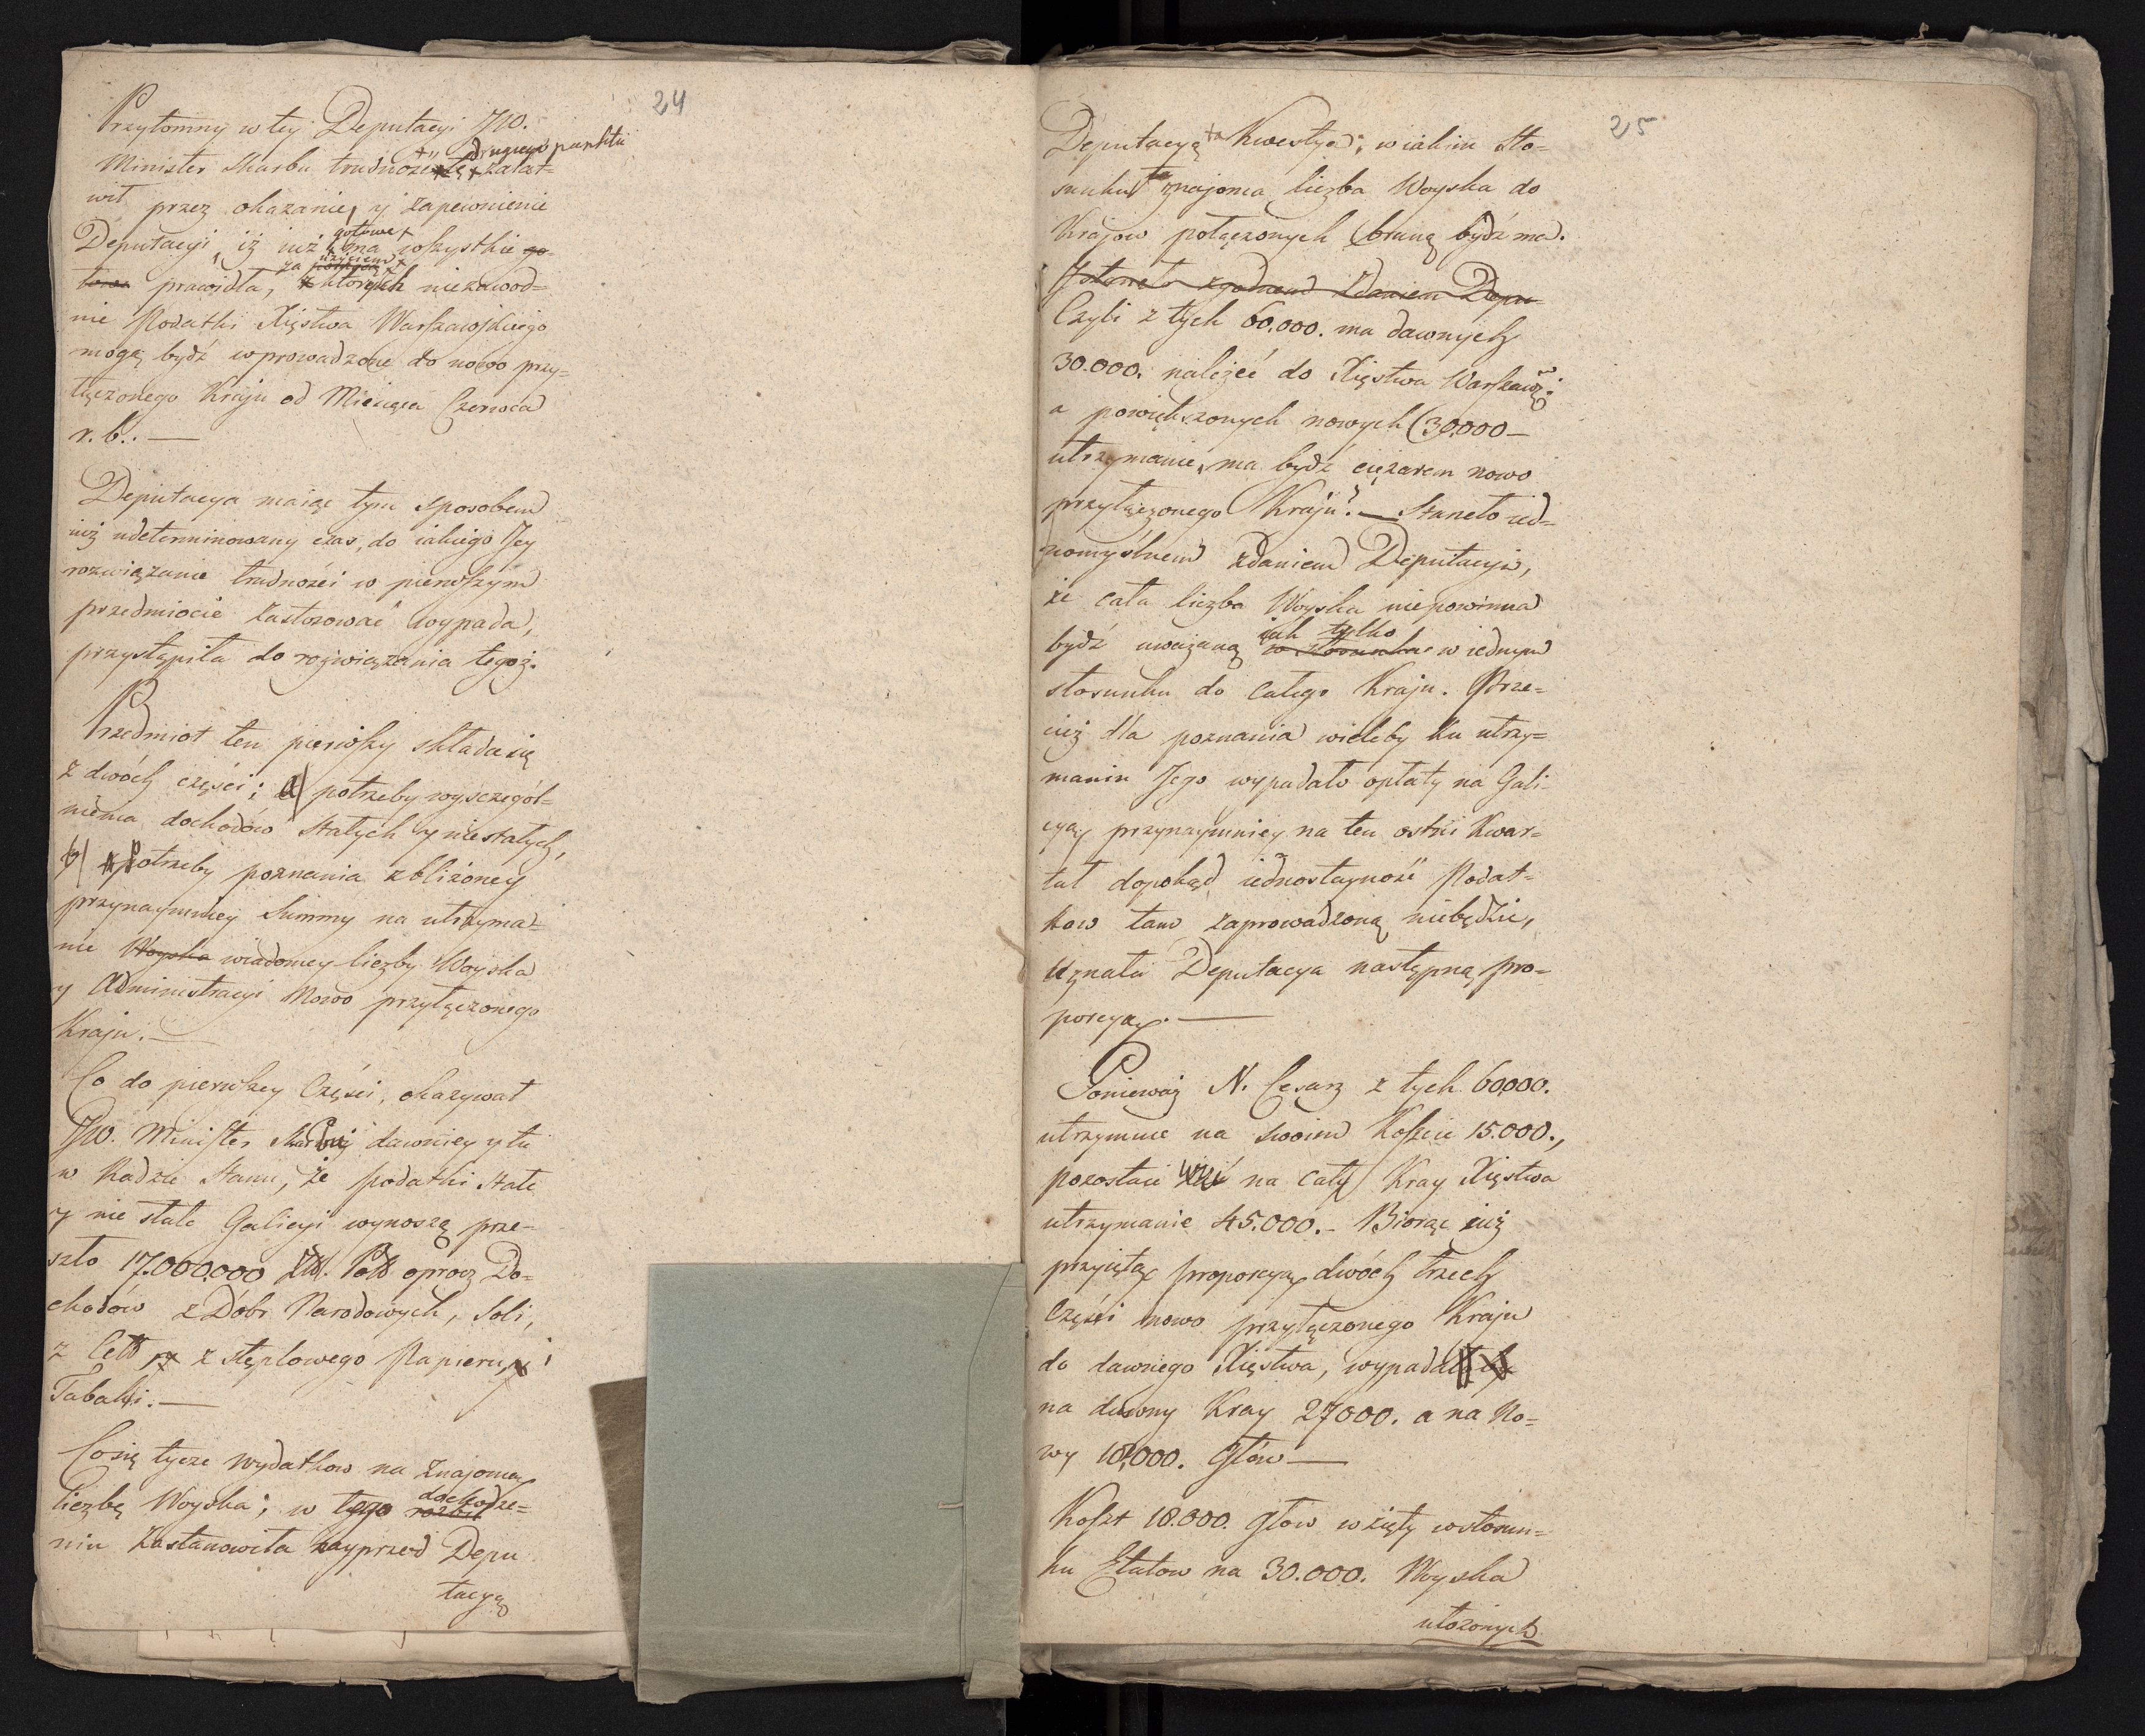 24
Przytomny w tey Deputacyi JW.
drugiego punktu
Minister Skarbu trudność tę załat=
wił przez okazanie, y zapewnienie
gotowe
Deputacyi, iż iuż ma wszystkie go-
za użyciem
towe prawidła, których niezawod=
nie Podatki Xięstwa Warszawskiego
mogą bydź wprowadzone do nowo przy=
łączonego Kraju od Miesiąca Czerwca
r. b. —
Deputacya maiąc tym sposobem
iuż udeterminowany czas, do iakiego Jey
rozwiązanie trudności w pierwszym
przedmiocie zastosować wypada,
przystąpiła do rozwiązania tegoż.
Przedmiot ten pierwszy składa się
z dwóch części; a/ potrzeby wyszczegól=
nienia dochodów stałych y niestałych,
b/ potrzeby poznania zbliżoney
przynaymniey Summy na utrzyma=
nie Woyska wiadomey liczby Woyska
y Administracyi Nowo przyłączonego
Kraju. —
Co do pierwszey Części, okazywał
JW. Minister Skarbu dawniey y tu
w Radzie Stanu, że podatki stałe
y nie stałe Galicyi wynoszą prze=
szło 17.000.000 Złł. Poll oprocz Do=
chodów z Dóbr Narodowych, Soli,
z Cełł z stęplowego Papieru, i
Tabaki. —
Co się tycze wydatkow na znajomą
liczbę Woyska; w tego dochodze=
niu zastanowiła nayprzed Depu
tacyą
25
Deputacyą ta Kwestya; w iakim sto=
sunku ta znajoma liczba Woyska do
Krajow połączonych braną bydź ma.
zgodnem zdaniem Depu-
Czyli z tych 60.000. ma dawnych
30.000. należeć do Xięstwa Warszawg:
a powiększonych nowych (30,000 —
utrzymanie, ma bydź ciężarem nowo
przyłączonego Kraju? — Staneło ied=
nomyślnem zdaniem Deputacyi,
że cała liczba Woyska niepowinna
iak tylko
bydź uważaną w stosunku w iednym
stosunku do całego Kraju. Prze=
cież dla poznania wieleby ku utrzy=
maniu Jego wypadało opłaty na Gali-
cyą przynaymniey na ten ostni Kwar=
tał dopokąd iednostayność Podat=
kow tam zaprowadzoną niebędzie,
uznała Deputacya następną pro=
porcyą. —
Ponieważ N. Cesarz z tych 60,000.
utrzymuie na swoim Koszcie 15.000.,
pozostaie na cały Kray Xięstwa
utrzymanie 45.000. - Biorąc iuż
przyiętą proporcyą dwóch trzech
Części nowo przyłączonego Kraju
do dawnego Xięstwa, wypada
na dawny Kray 27000. a na No=
wy 18,000. Głów —
Koszt 18.000. głow wzięty w stosun=
ku Etatow na 30.000. Woyska
ułożonych